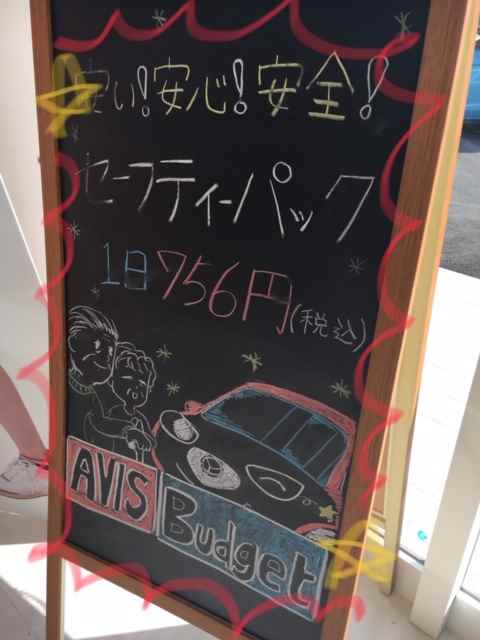 安い!安心!安全!
セーフティーパック
1日756円(税込)
AVIS
Budget